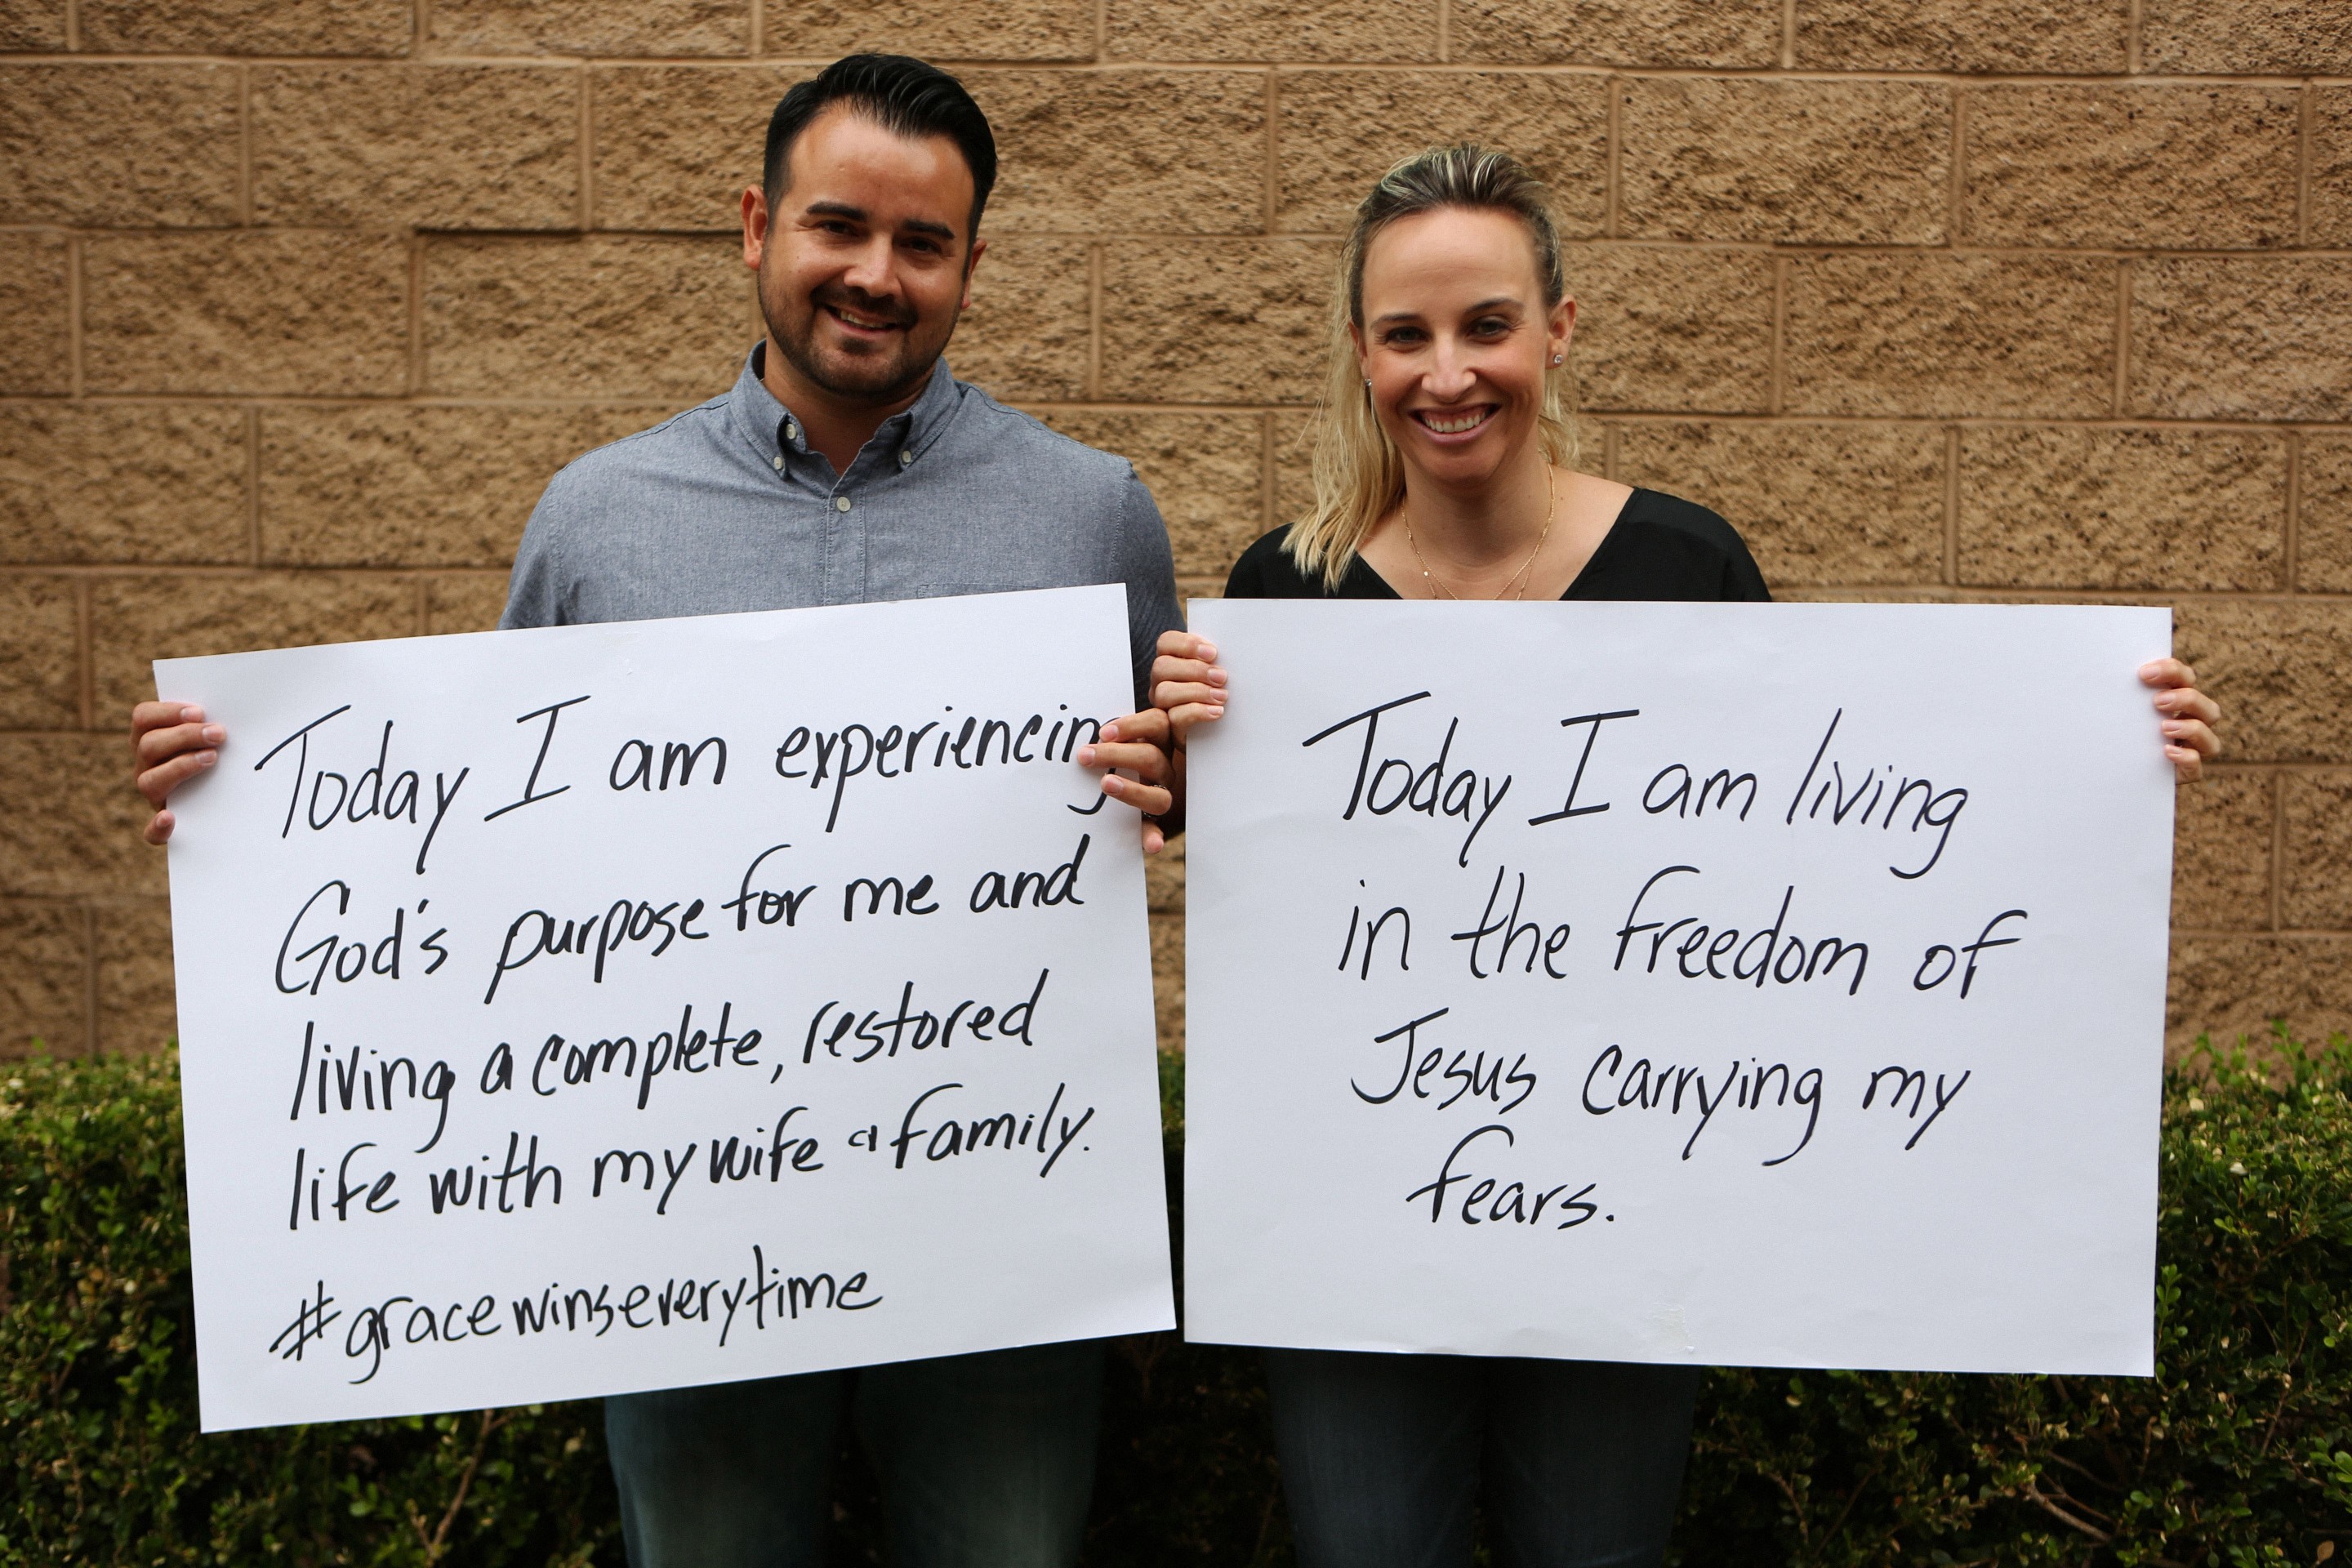 Today I am experiencing
God's purpose for me and
living a complete, restored
life with my wife & family.
#gracewinseverytime
Today I am living
in the freedom of
Jesus carrying my
fears.